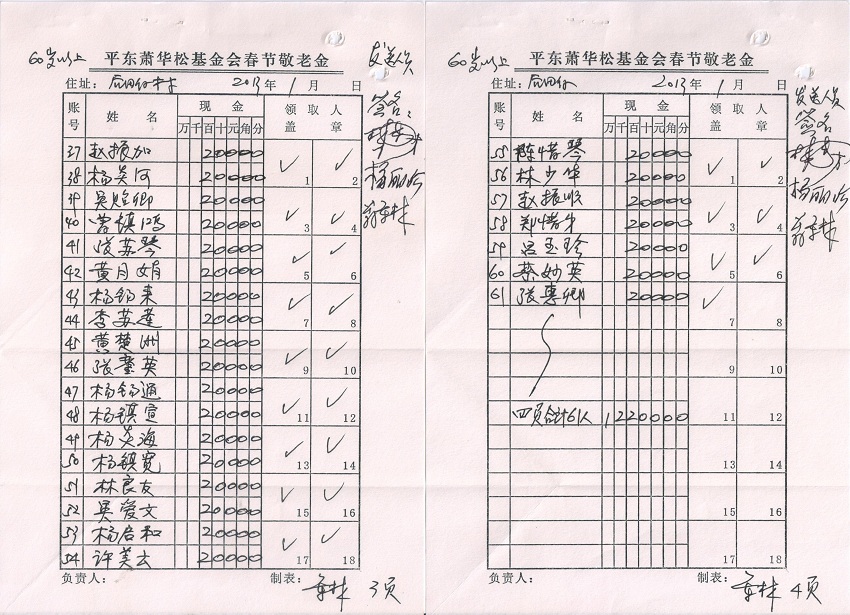 60岁以上 平东萧华松基金会春节敬老金 发送人员
住址: 2013年1月 日 签名:
账号 姓名 现金 领取人盖章
万千百十元角分
37 赵振加 20000 1 2
38 杨美河 20000
39 吴贻卿 20000 3 4
40 曾镇鸿 20000
41 张苏琴 20000 5 6
42 黄月娟 20000
43 杨锡来 20000 7 8
44 李苏莲 20000
45 黄楚洲 20000 9 10
46 张重英 20000
47 杨锡通 20000 11 12
48 杨镇宣 20000
49 杨炎海 20000 13 14
50 杨镇宽 20000
51 林良友 20000 15 16
52 吴爱文 20000
53 杨启和 20000 17 18
54 许美云 20000
负责人: 制表: 3页
60岁以上 平东萧华松基金会春节敬老金 发送人员
住址: 2013年1月 日 签名
账号 姓名 现金 领取人盖章
万千百十元角分
55 陈惜琴 20000 1 2
56 林少华 20000
57 赵振顺 20000 3 4
58 郑惜卿 20000
59 吕玉珍 20000 5 6
60 蔡妙英 20000
61 张惠卿 20000 7 8
9 10
四页合计61人 1220000 11 12
13 14
15 16
17 18
负责人: 制表: 4页